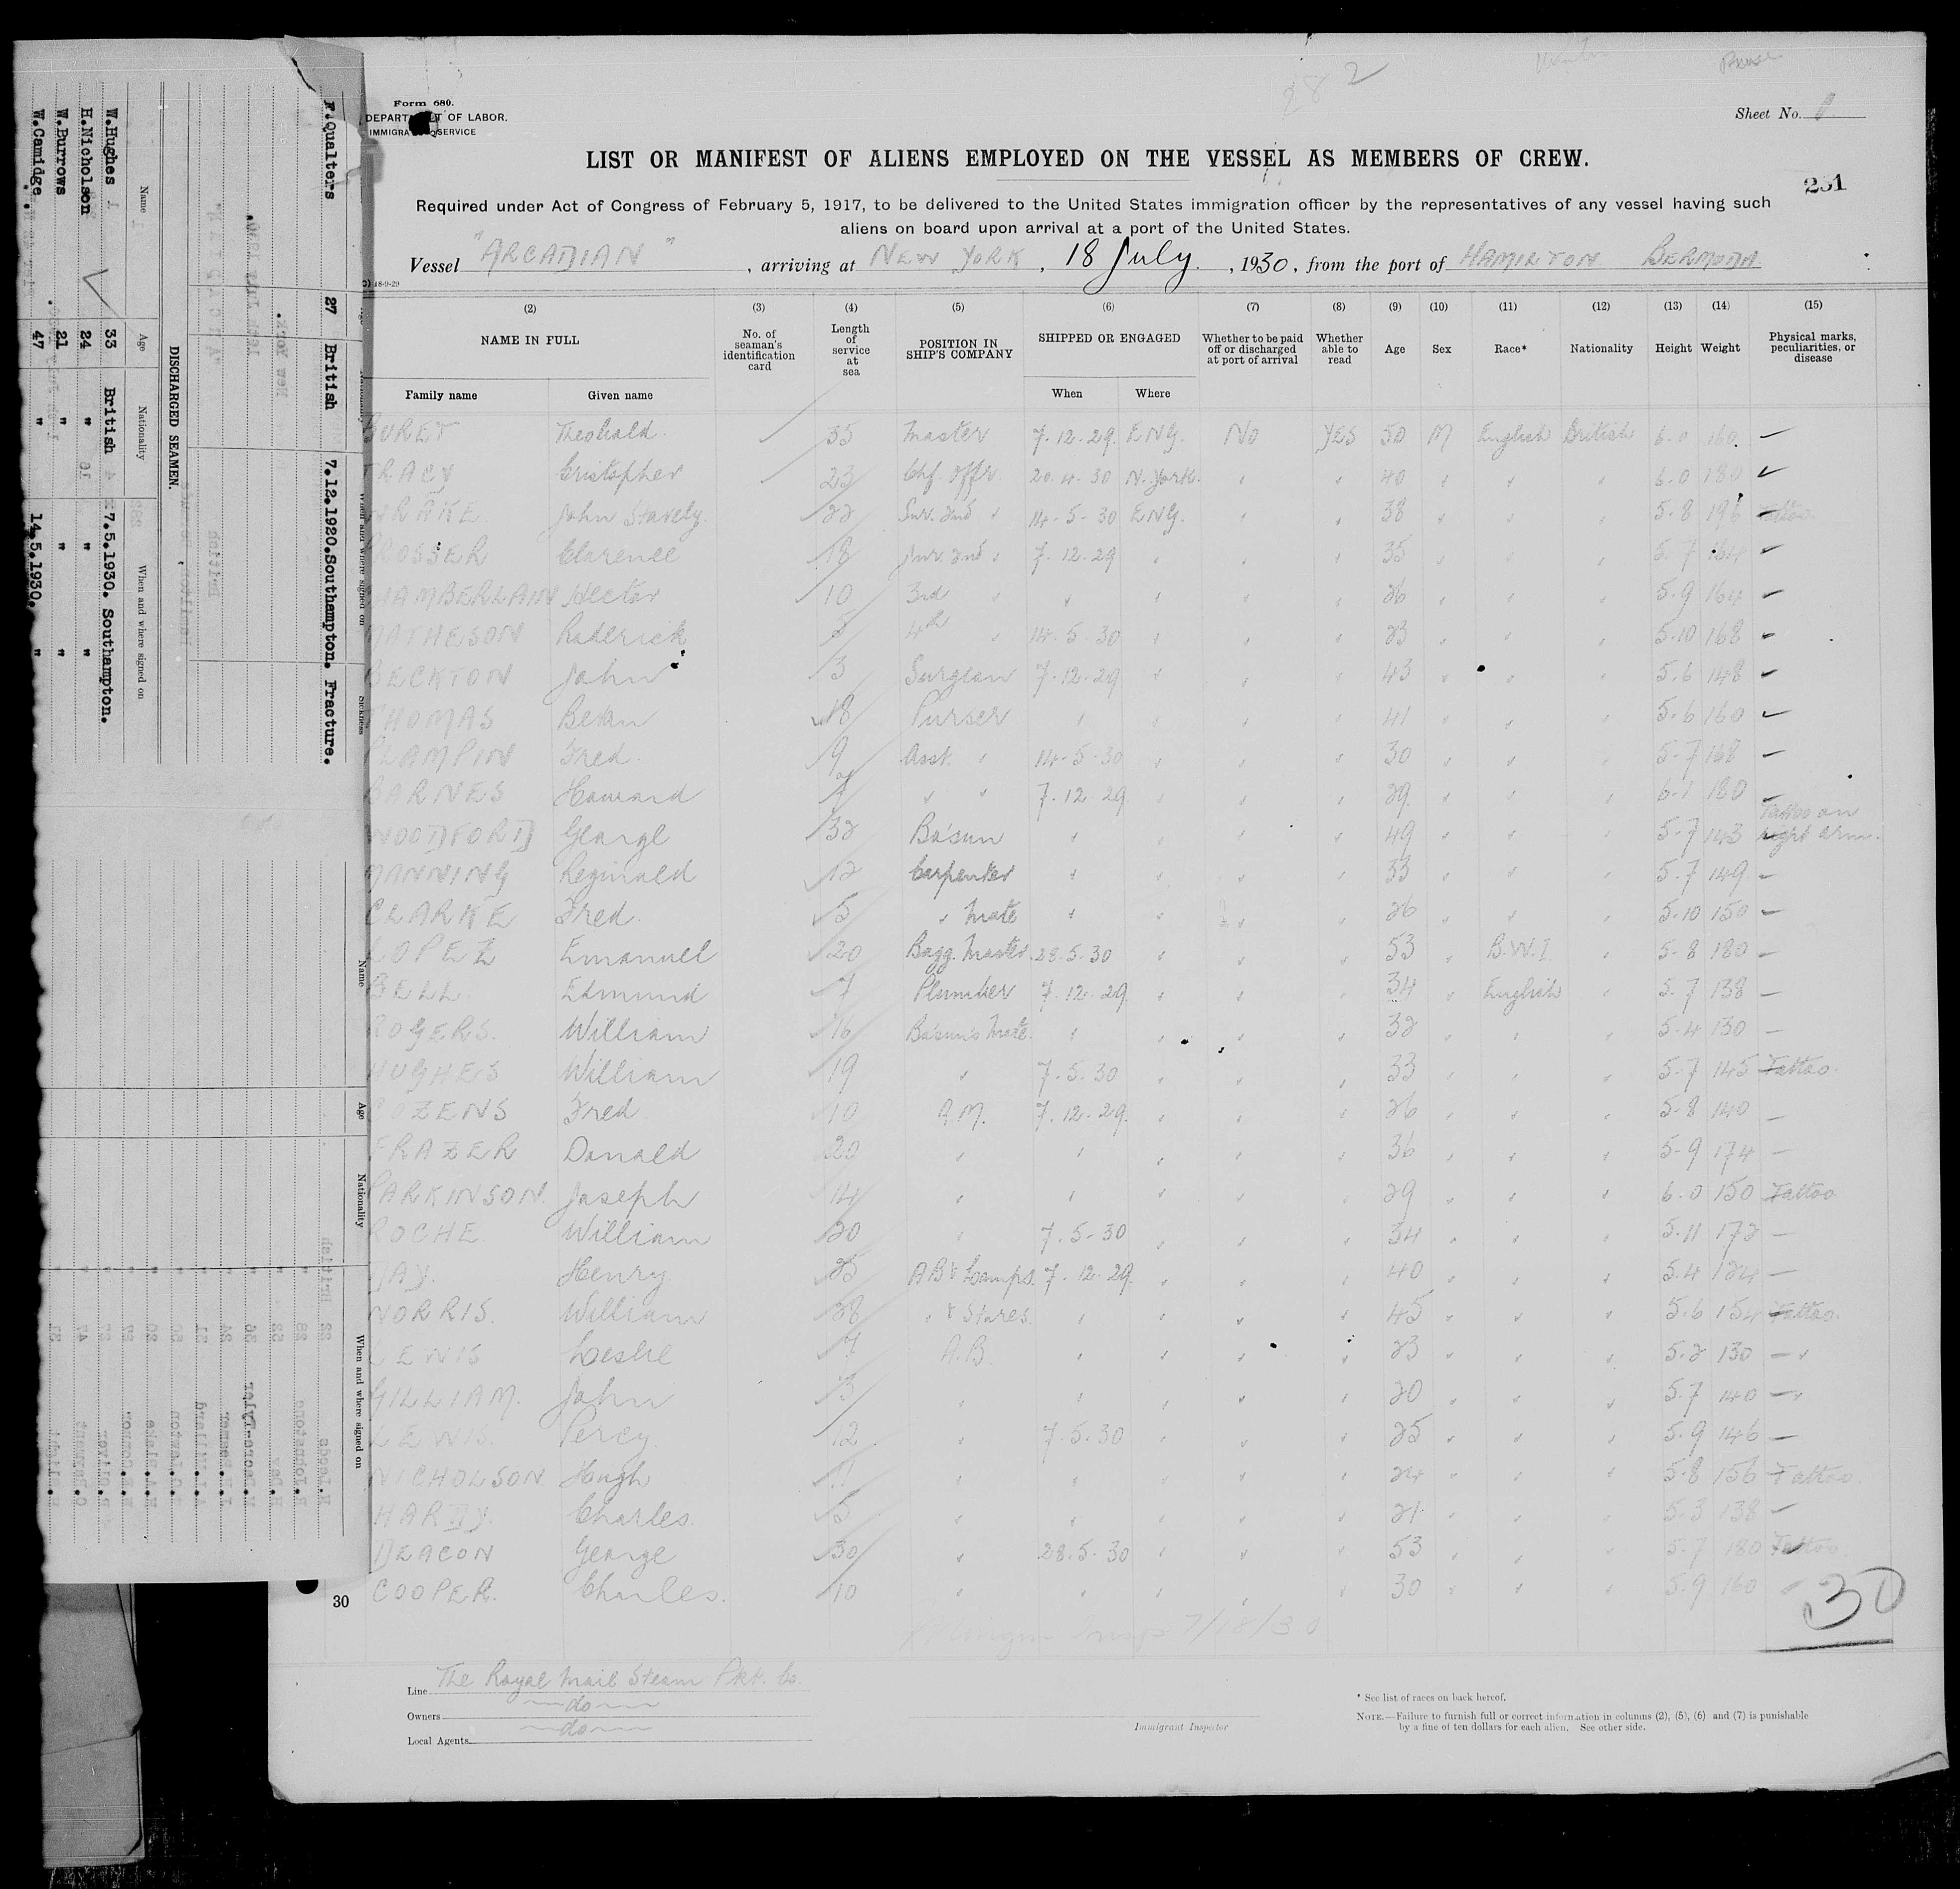 282
Form 680.
DEPARTMENT OF LABOR.
IMMIGRA SERVICE
Sheet No.
LIST OR MANIFEST OF ALIENS EMPLOYED ON THE VESSEL AS MEMBERS OF CREW.
231
Required under Act of Congress of February 5, 1917, to be delivered to the United States immigration officer by the representatives of any vessel having such
aliens on board upon arrival at a port of the United States.
Vessel "ARCADIAN", arriving at NEW YORK, 18 July, 1930, from the port of HAMILTON BERMUDA.
18-9-29
(2) (3) (4) (5) (6) (7) (8) (9) (10) (11) (12) (13) (14) (15)
NAME IN FULL No. of seaman's identification card Length of service at sea POSITION IN SHIP'S COMPANY SHIPPED OR ENGAGED Whether to be paid off or discharged at port of arrival Whether able to read Age Sex Race* Nationality Height Weight Physical marks, peculiarities, or disease
Family name Given name When Where
BURET Theobald 35 Master 7.12.29. ENG. No YES 50 M English British 6.0 160
TRACY Cristopher 23 Chf. Offr. 20.4.30 N. York. " " 40 " " " 6.0 180
DRAKE John Stavely. 22 Snr. 2nd " 14-5-30 ENG. " " 38 " " " 5-8 196 Tattoo
PROSSER Clarence 18 Jnr. 2nd " 7.12.29 " " " 35 " " " 5.7 164
CHAMBERLAIN Hector 10 3rd " " " " " 26 " " " 5.9 164
MATHESON Roderick 4th " 14.5.30 " " " 23 " " " 5.10 168
BECKTON John 3 Surgeon 7.12.29 " " " 43 " " " 5.6 148
THOMAS Bevan 18 Purser " " " " 41 " " " 5.6 160
PLAMPIN Fred. 9 Asst. " 14-5-30 " " " 30 " " " 5-7 168
BARNES Howard " " 7.12.29 " " " 29 " " " 6.1 180
WOODFORD George 32 Bo'sun " " " " 49 " " " 5-7 143 Tattoo on right arm.
MANNING Reginald 12 Carpenter " " " " 33 " " " 5.7 149
CLARKE Fred. 5 " Mate " " " " 26 " " " 5.10 150
LOPEZ Emanuel 20 Bagg. Master. 28.5.30 " " 53 " B.W.I. " 5-8 180
BELL Edmund 7 Plumber 7.12.29 " " " 34 " English " 5.7 138
ROGERS. William 16 Bo'sun's Mate. " " " " 32 " " " 5-4 130
HUGHES William 19 " 7.5.30 " " " 33 " " " 5.7 145 Tattoo.
COZENS Fred 10 Q.M. 7.12.29. " " " 26 " " " 5-8 140
FRAZER Donald 20 " " " " " 36 " " " 5-9 174
PARKINSON. Joseph 14 " " " " " 29 " " " 6.0 150 Tattoo
ROCHE William 20 " 7.5-30 " " " 34 " " " 5.11 172
DAY. Henry. 25 AB & Lamps. 7.12.29. " " " 40 " " " 5.4 124
NORRIS. William 28 " & Stores. " " " " 45 " " " 5.6 154 Tattoo.
LEWIS Leslie 7 A.B. " " " " 23 " " " 5.2 130 "
GILLIAM. John 3 " " " " " 20 " " " 5.7 140 "
LEWIS. Percy. 12 " 7.5.30 " " " 25 " " " 5.9 146
NICHOLSON Hugh 11 " " " " " 24 " " " 5.8 156 Tattoo.
HARDY. Charles. 5 " " " " " 21 " " " 5.3 138
DEACON George 30 " 28.5.30 " " " 53 " " " 5.7 180 Tattoo
30 COOPER. Charles. 10 " " " " " 30 " " " 5.9 160
30
7/18/30
Line The Royal Mail Steam Pkt. Co.
Owners do
Local Agents do
Immigrant Inspector
* See list of races on back hereof.
NOTE.—Failure to furnish full or correct information in columns (2), (5), (6) and (7) is punishable
by a fine of ten dollars for each alien. See other side.
F.Qualters 27 British 7.12.1920.Southampton. Fracture.
Name Age Nationality When and where signed on
DISCHARGED SEAMEN.
Name Age Nationality When and where signed on
W.Hughes 33 British 7.5.1930. Southampton.
H.Nicholson 24 " " "
W.Burrows 21 " " "
W.Camidge. 47 " 14.5.1930. "